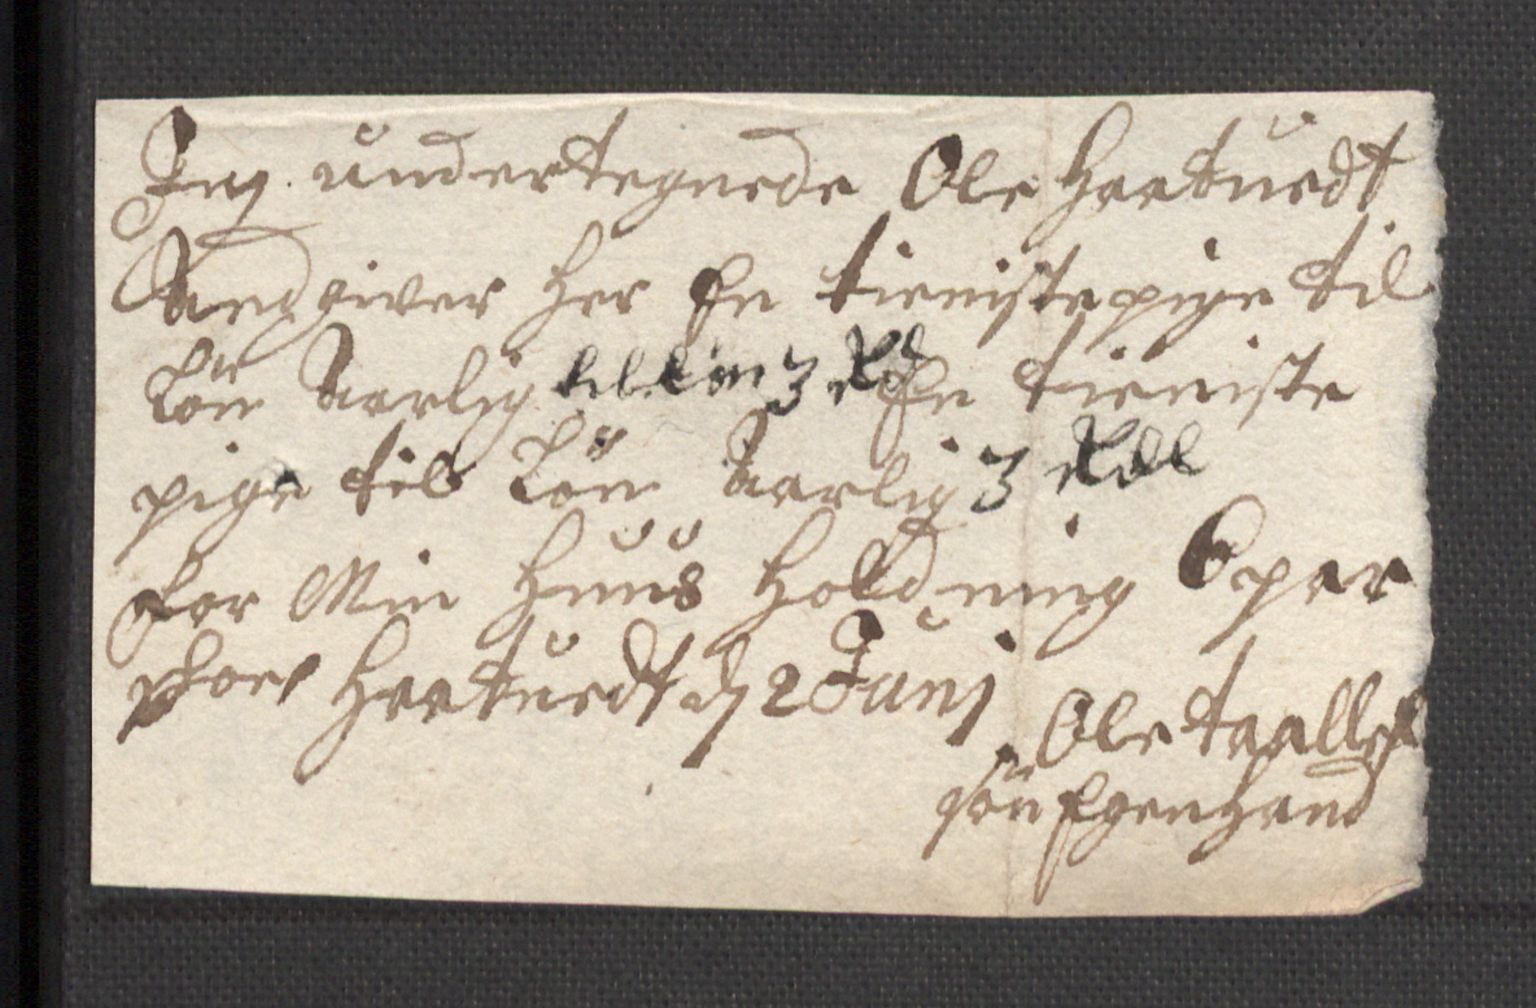 Jeg undertegnede Ole Haatuedt
Angiver her En tieniste pige til
Lön Aarlig til Lön 3 Rd En tieniste
pige til Lön Aarlig 3 Rdl
for Min Huus Holdning
Haatuedt d 2 Junj
Ole taallef
sön Egenhand